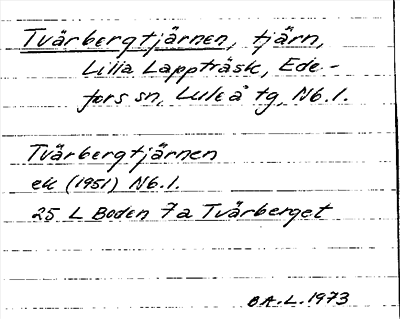 Tvärbergtjärnen, tjärn,
Lilla Lappträsk, Ede-
fors sn, Luleå tg, Nb.l.
Tvärbergtjärnen
ek (1951) Nb.l.
25 L Boden 7a Tvärberget
B A.L. 1973